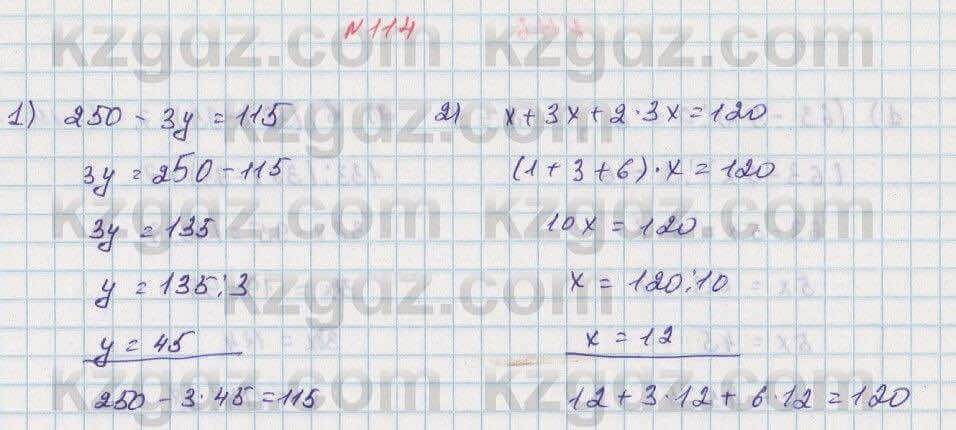 N 114
1) 250 - 3y = 115
3y = 250 - 115
3y = 135
y = 135 : 3
y = 45
250 - 3 · 45 = 115
2) x + 3x + 2 · 3x = 120
(1 + 3 + 6) · x = 120
10x = 120
x = 120 : 10
x = 12
12 + 3 · 12 + 6 · 12 = 120
kzgdz.com
kzgdz.com
kzgdz.com
kzgdz.com
kzgdz.com
kzgdz.com
kzgdz.com
kzgdz.com
kzgdz.com
kzgdz.com